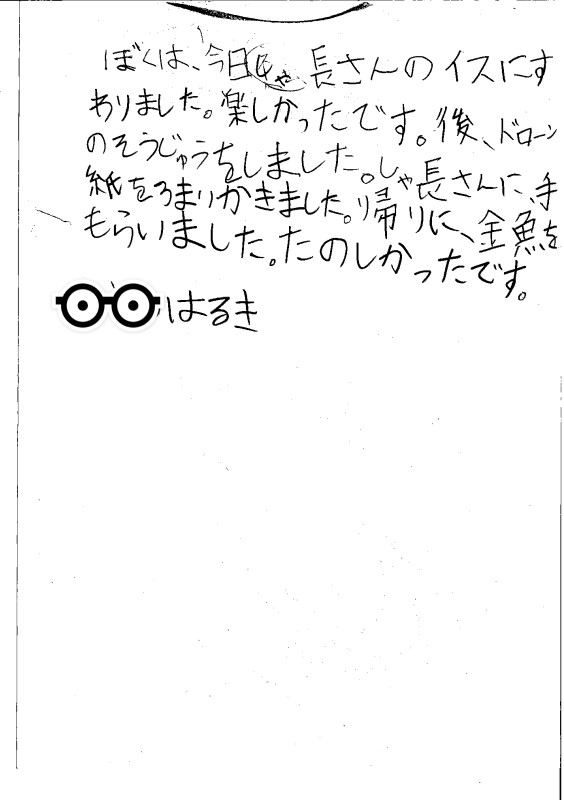 ぼくは、今日しゃ長さんのイスにす
わりました。楽しかったです。後、ドローン
のそうじゅうをしました。しゃ長さんに、手
紙を3まいかきました。帰りに、金魚を
もらいました。たのしかったです。
はるき